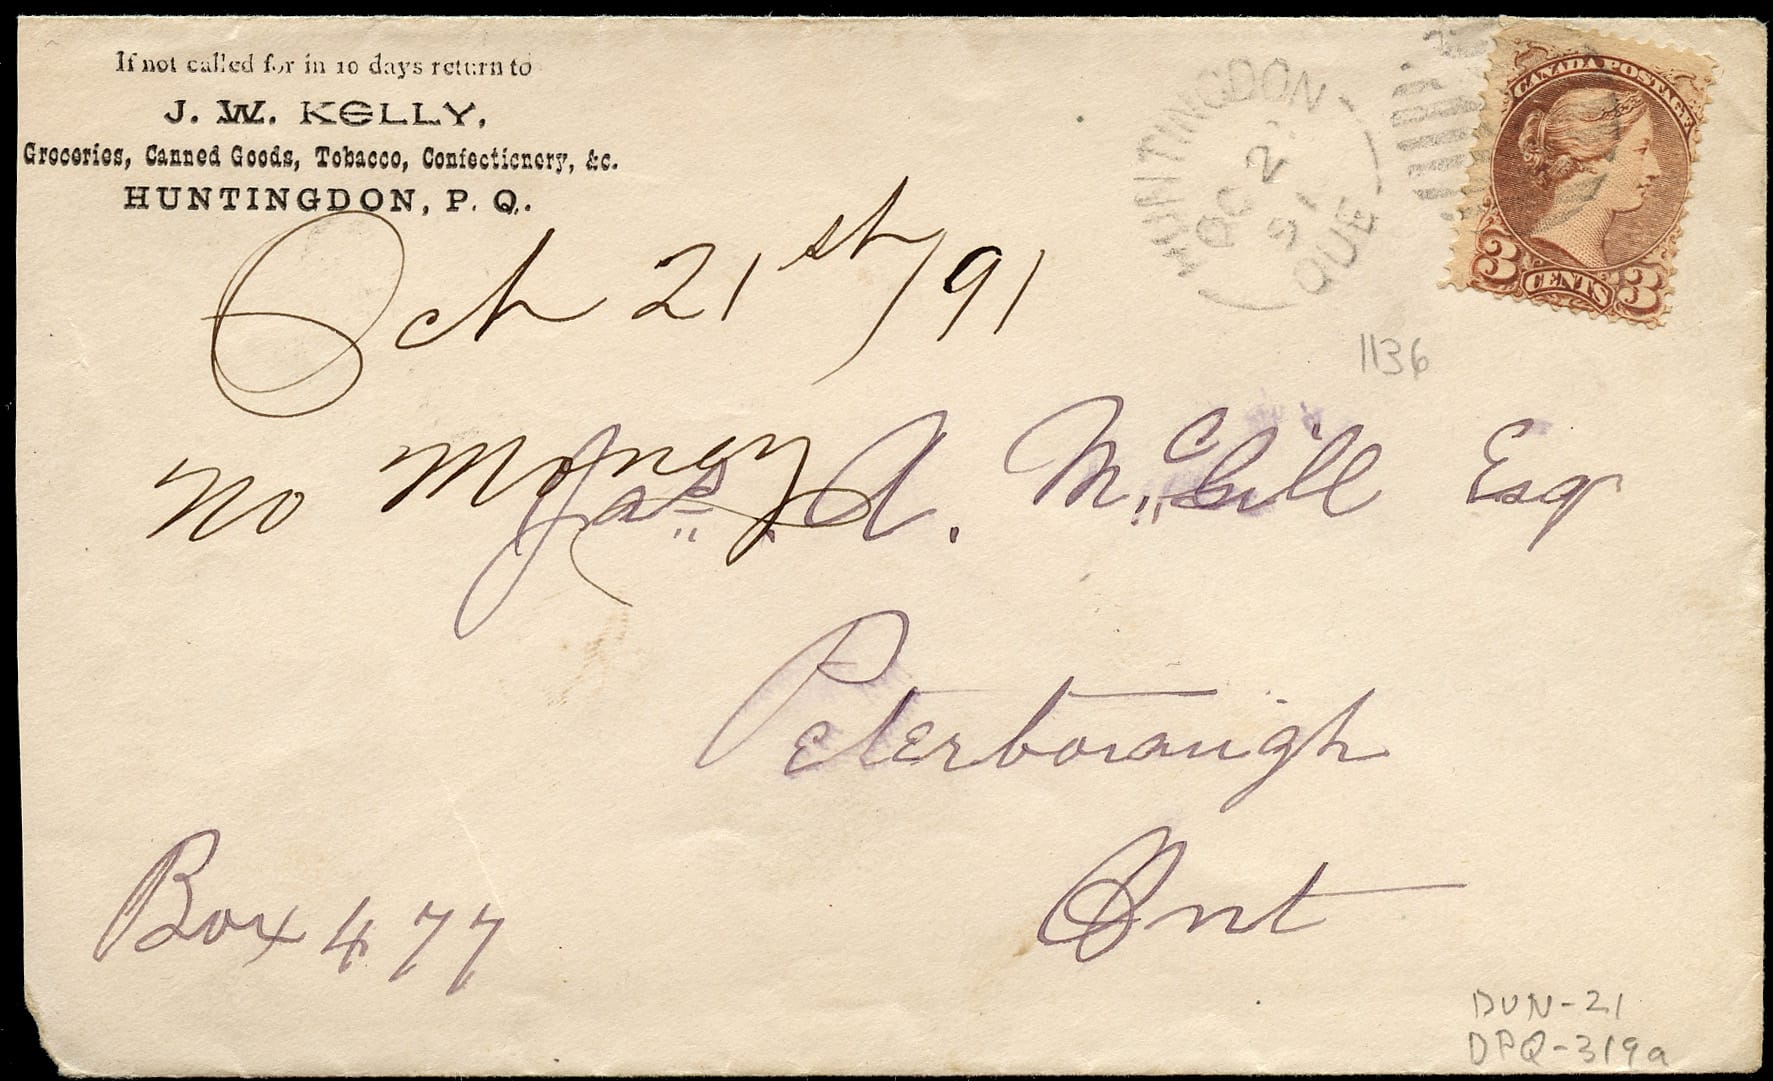 If not called for in 10 days return to
J. W. KELLY,
Groceries, Canned Goods, Tobacco, Confectionery, &c.
HUNTINGDON, P. Q.
HUNTINGDON
OC 2
91
QUE
CANADA POSTAGE
3 CENTS 3
1136
Oct 21st/91
No Money
Jas. A. McGill Esq
Peterborough
Ont
Box 477
DUN-21
DPQ-319a